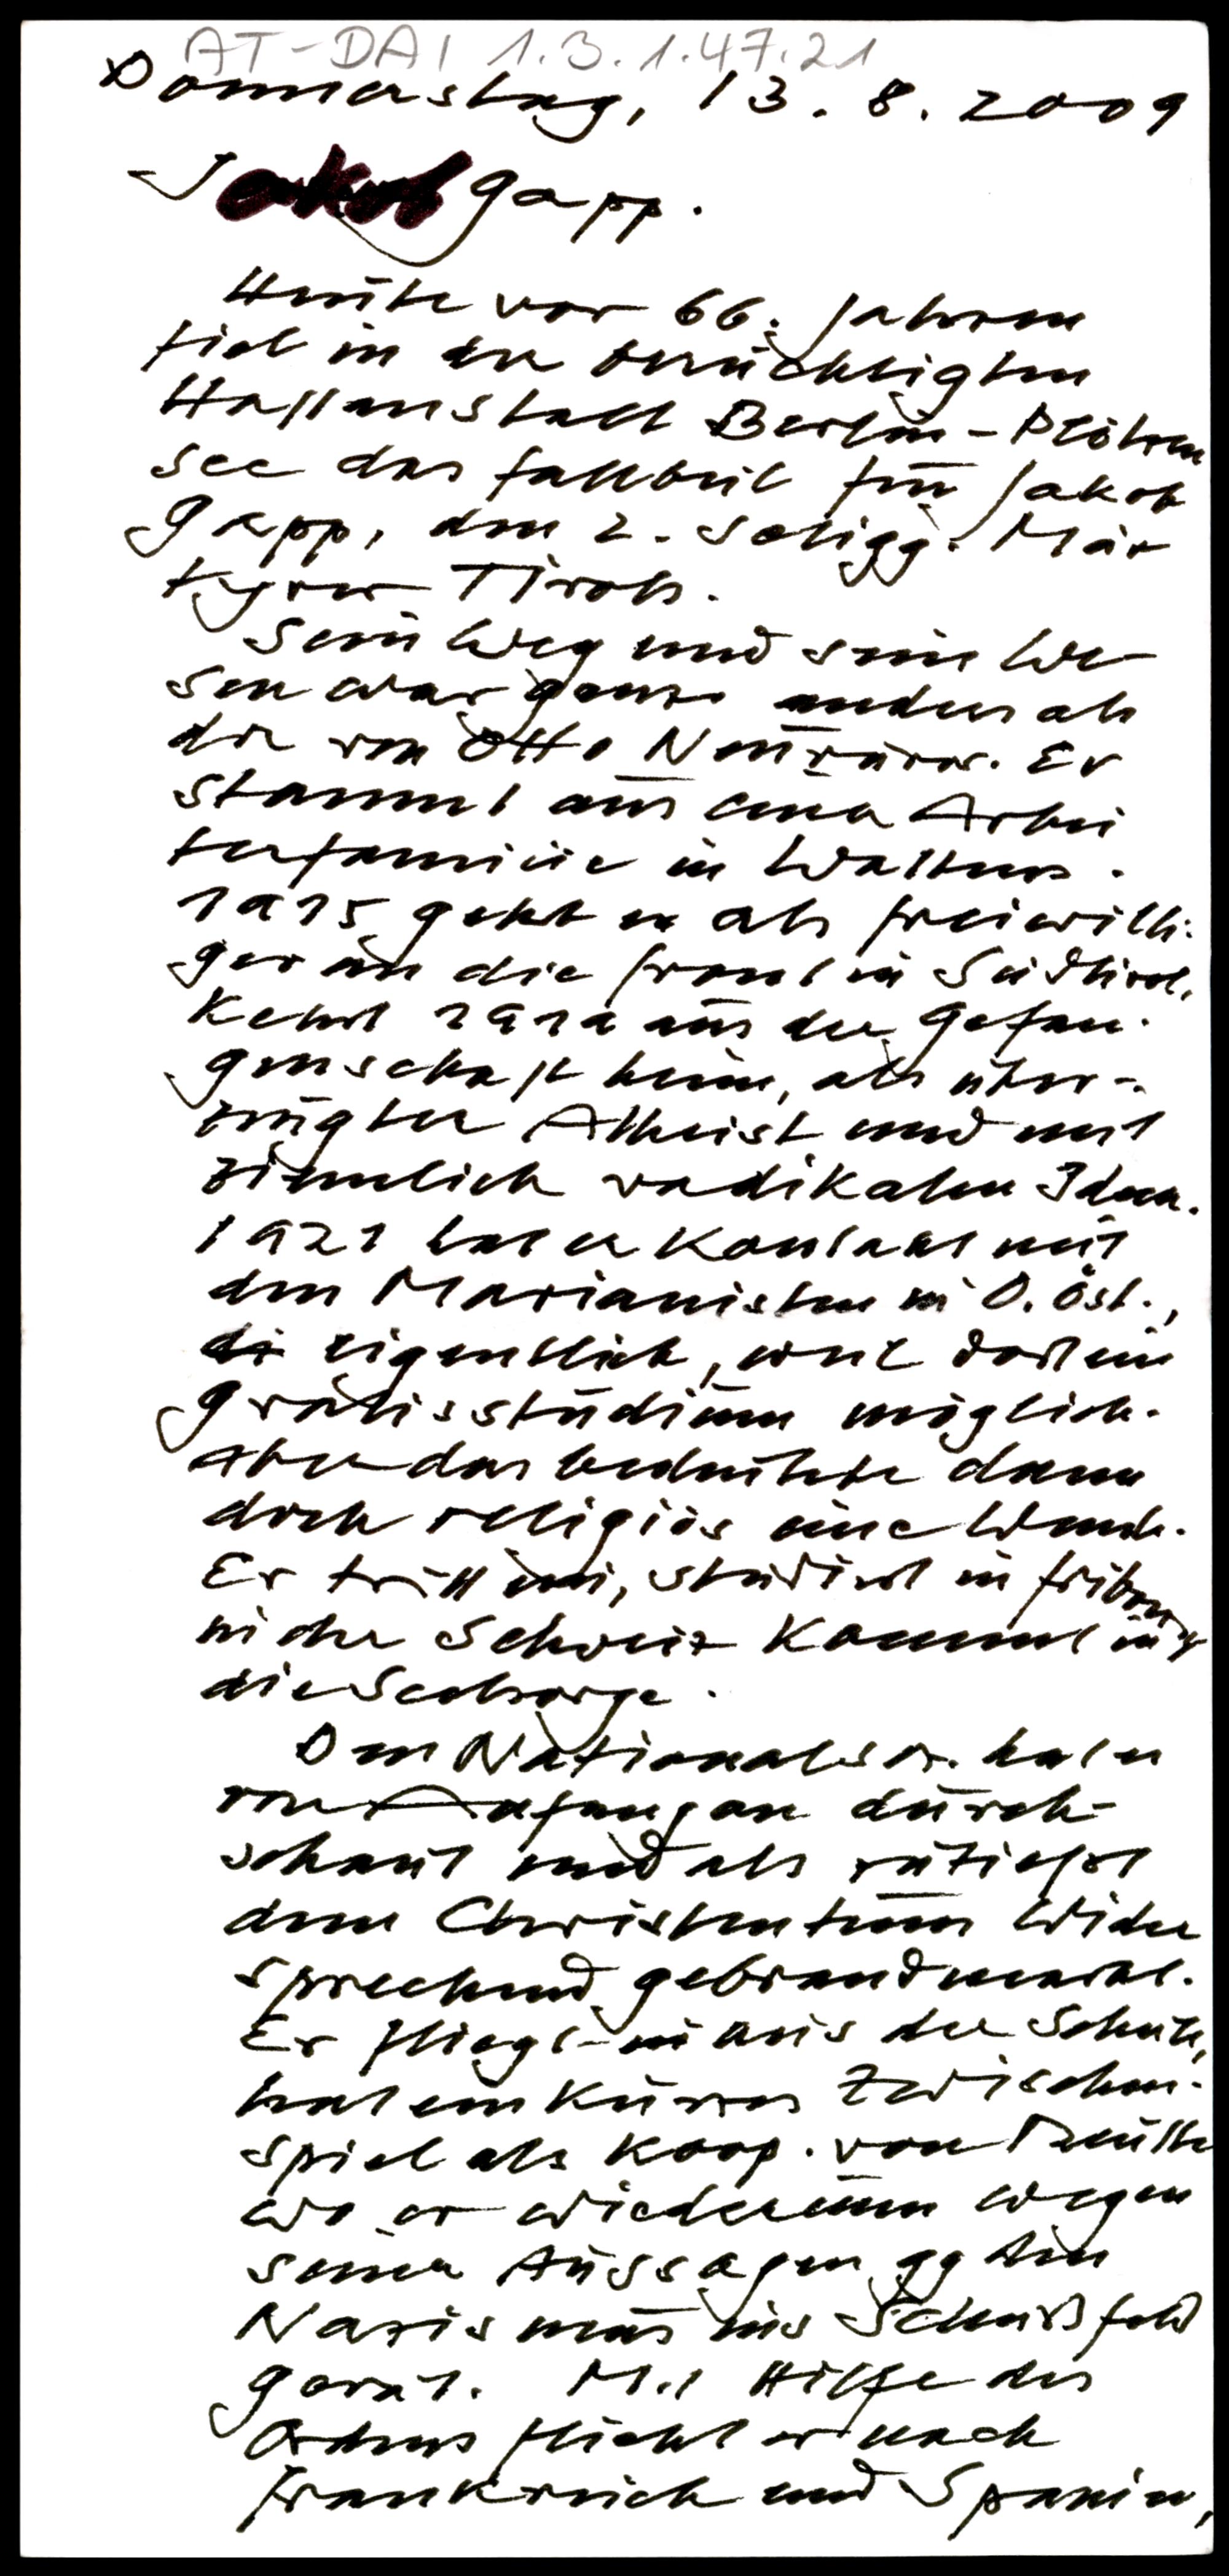 AT-DAI 1.3.1.47.21
Donnerstag, 13.8.2009
Jakob Gapp.
Heute vor 66. Jahren
fiel in der berüchtigten
Haftanstalt Berlin-Plötzen
see das Fallbeil für Jakob
Gapp, den 2. seligg. Mär
tyrer Tirols.
Sein Weg und sein We
sen war ganz anders als
der von Otto Neururer. Er
stammt aus einer Arbei
terfamilie in Wattens.
1915 geht er als Freiwilli-
ger an die Front in Südtirol,
kehrt 1919 aus der Gefan-
genschaft heim, als über-
zeugter Atheist und mit
ziemlich radikalen Ideen.
1921 hat er Kontakt mit
den Marianisten in O.Öst.,
di eigentlich, weil dort ein
Gratisstudium möglich.
Aber das bedeutete dann
doch religiös eine Wende.
Er tritt ein, studiert in Fribourg
in der Schweiz kommt in
die Seelsorge.
Den Nationalsoz. hat er
von Anfang an durch-
schaut und als zutiefst
dem Christentum wider
sprechend gebrandmarkt.
Er fliegt in aus der Schule,
hat ein kurzes Zwischen-
spiel als Koop. von Reutte
wo er wiederum wegen
seiner Aussagen gg den
Nazismus ins Schußfeld
gerät. Mit Hilfe des
Ordens flieht er nach
Frankreich und Spanien,